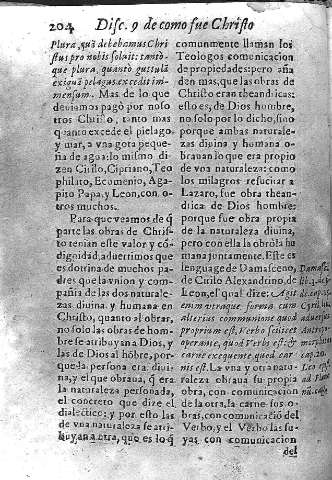 204 Disc. 9 de como fue Christo
Plura, quã debebamus Chri
stus pro nobis soluit: tantò-
que plura, quantò guttulã
exiguã pelagus excedit im-
mensum. Mas de lo que
deviamos pagò por noso
tros Christo, tanto mas
quanto excede el pielago,
y mar, a vna gota peque-
ña de agua: lo mismo di-
zen Cirilo, Cipriano, Teo
philato, Ecomenio, Aga-
pito Papa, y Leon, con o-
tros muchos.
Para que veamos de q̃
parte las obras de Chris-
to tenian este valor y cõ-
dignidad, aduertimos que
es dotrina de muchos pa-
dres que la vnion y com-
pañia de las dos naturale-
zas diuina y humana en
Christo, quanto al obrar,
no solo las obras de hom-
bre se atribuyan a Dios, y
las de Dios al hõbre, por-
que la persona era diui-
na, y el que obraua, q̃ era
la naturaleza personada,
el concreto que dize el
dialectico; y por esto las
de vna naturaleza se atri-
buyan a otra, que es lo q̃
comunmente llaman los
Teologos comunicacion
de propiedades: pero aña
den mas, que las obras de
Christo eran theandricas:
esto es, de Dios hombre,
no solo por lo dicho, sino
porque ambas naturale-
zas diuina y humana o-
brauan lo que era propio
de vna naturaleza: como
los milagros resucitar a
Lazaro, fue obra thean-
drica de Dios hombre:
porque fue obra propia
de la naturaleza diuina,
pero con ella la obrò la hu
mana juntamente. Este es
lenguage de Damasceno,
de Cirilo Alexandrino, de
Leon, el qual dize: Agit
enim utraque forma cum
alterius communione quod
proprium est, Verbo scilicet
operante, quod Verbi est; &
carne exequente quod car-
nis est. La vna y otra natu
raleza obraua su propia
obra, con comunicacion
de la otra, la carne sus o-
bras, con comunicaciõ del
Verbo, y el Verbo las su-
yas con comunicacion
del